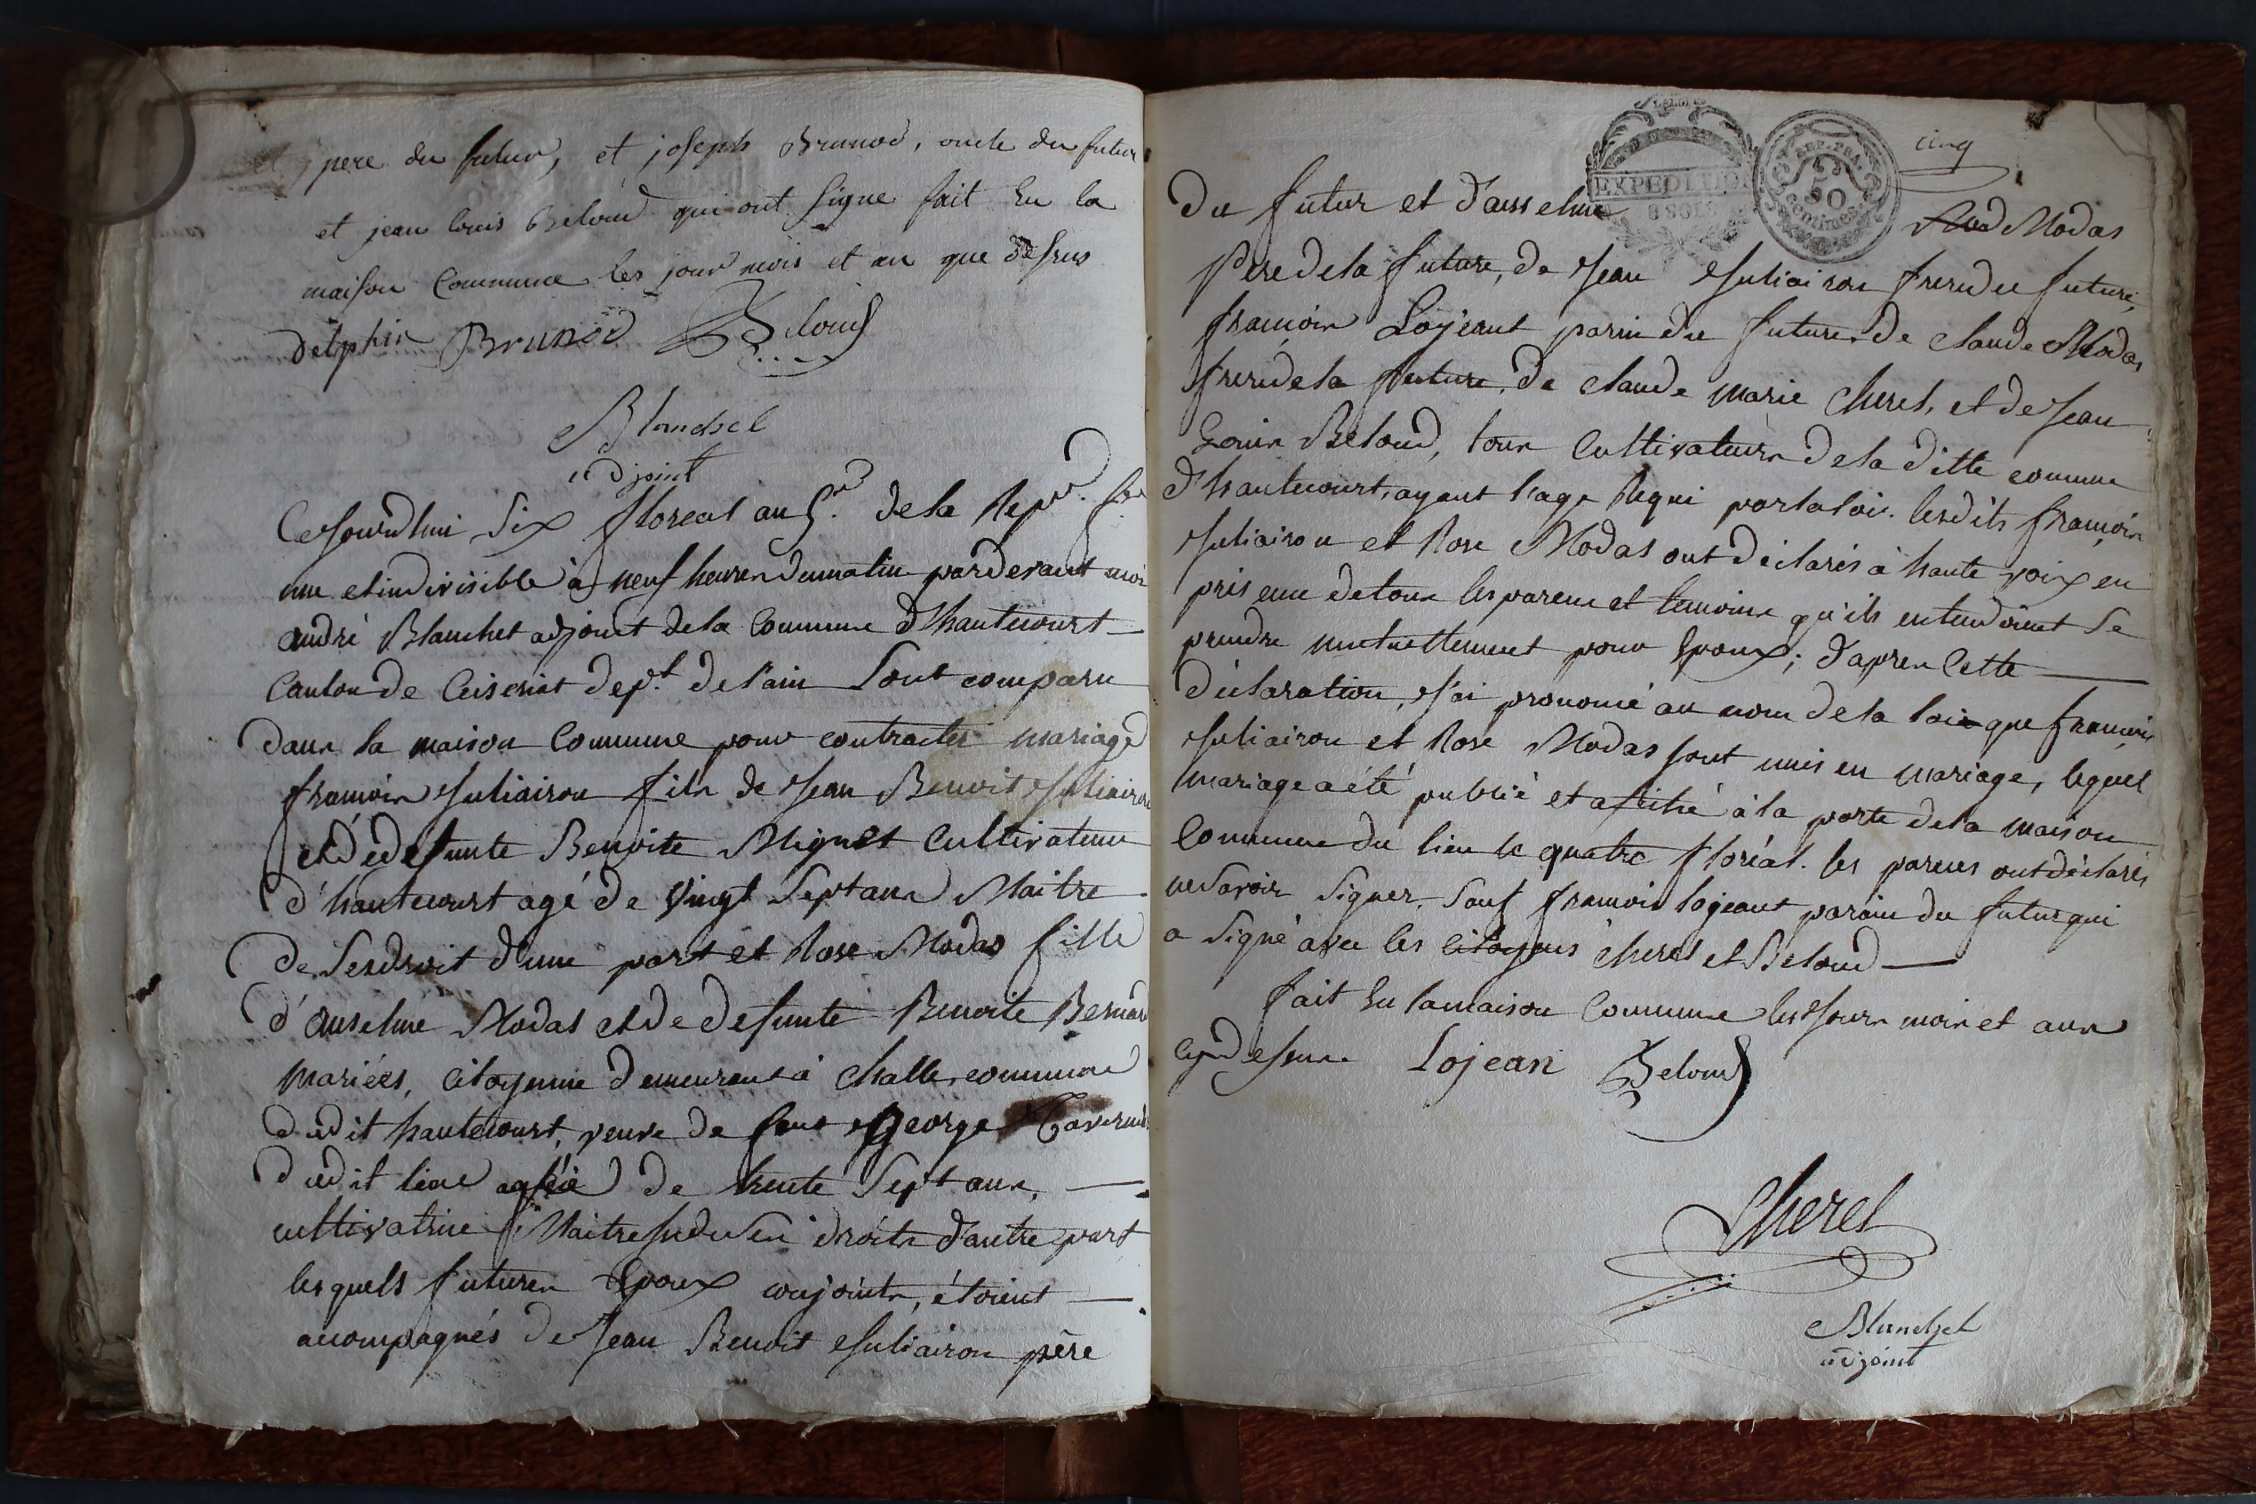 pere du futur, et joseph Brunod, oncle du futur
et jean louis Beloud qui ont signe fait en la
maison Commune les jour mois et an que dessus
delphin Brunod Beloud
Blanchet
adjoint
Cejourdhui Six floreal an 5.e de la Repu.e fr
une et indivisible à neuf heures du matin pardevant moi
andré Blanchet adjoint de la Commune d'hautecourt
Canton de Ceiseriat dep.t de l'ain Sont comparu
dans la maison Commune pour contracter mariage
françois Juliairon fils de Jean Benoit Juliairon
et de defunte Benoite Mignet Cultivateur
d'hautecourt agé de vingt Sept ans Maitre
de Sesdroit d'une part et Rose Modas fille
d'anselme Modas et de defunte Benoite Bernard
mariées, citoyenne demeurant à Challe commune
dudit hautecourt, veuve de feut george
dudit lieu agée de trente Sept ans,
cultivatrice Maitresse de Ses droits d'autre part
lesquels futures Epoux conjoints, étoient
accompagnés de Jean Benoit Juliairon père
EXPEDITION
8 SOLS
REP. FRA.
50
centimes
cinq
du futur et d'ansselme Modas
Pere de la future, de Jean Juliairon frere du future,
françois Lojeant parin du future de Claude Modas
frere de la future, de Claude Marie Cherel, et de Jean
Louis Beloud, tous Cultivateurs de la ditte commune
d'hautecourt, ayant l'age Requi par la loi. lesdits françois
Juliairon et Rose Modas ont déclarés à haute voix en
présence de tous les parens et temoins qu'ils entendoient Se
prendre mutuellement pour Epoux; d'apres Cette
déclaration, J'ai prononcé au nom de la loi que françois
Juliairon et Rose Modas sont unis en mariage, lequel
mariage a été publié et affiché à la porte de la maison
Commune du lieu le quatre floréal. les parens ont déclarés
ne Savoir Signer. Sauf françois lojeant parain du futur qui
a Signé avec les citoyens cherel et Beloud
fait en la maison Commune les Jours mois et ans
cy dessus. Lojean Beloud
Cherel
Blanchet
adjoint